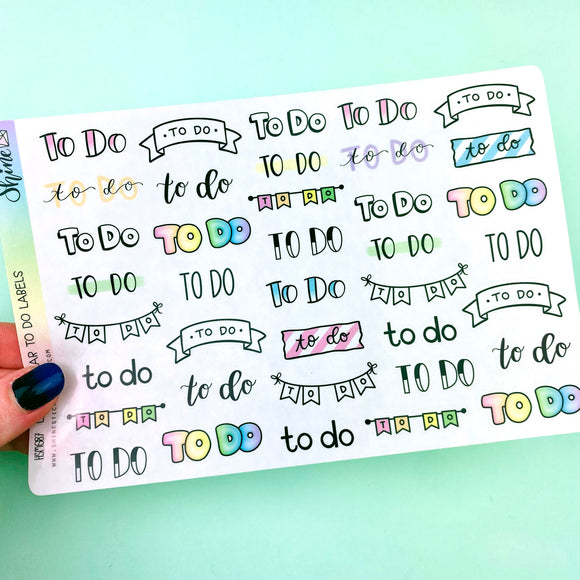 Shine
AR TO DO LABELS
To Do
- TO DO -
To Do
To Do
- TO DO -
to do
TO DO
to do
TO DO
to do
TO DO
to do
TO DO
To Do
TO DO
To Do
TO DO
TO DO
TO DO
TO DO
To Do
TO DO
TO DO
TO DO
- TO DO -
to do
TO DO
- TO DO -
to do
to do
TO DO
to do
to do
TO DO
TO DO
TO DO
TO DO
TO DO
to do
TO DO